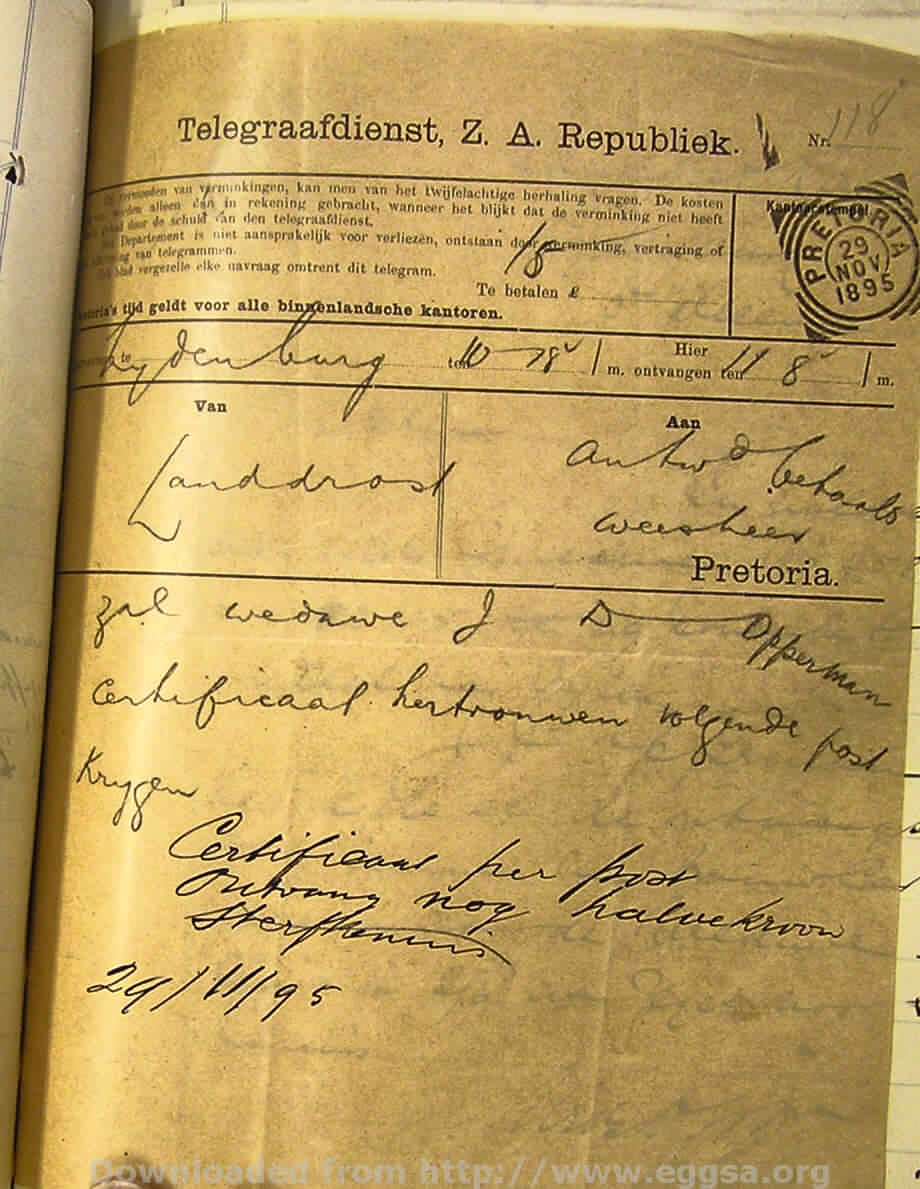 Telegraafdienst, Z. A. Republiek. Nr. 118
vermoeden van verminkingen, kan men van het twijfelachtige herhaling vragen. De kosten
worden alleen dan in rekening gebracht, wanneer het blijkt dat de verminking niet heeft
door de schuld van den telegraafdienst.
Departement is niet aansprakelijk voor verliezen, ontstaan door verminking, vertraging of
van telegrammen.
blad vergezelle elke navraag omtrent dit telegram.
Te betalen £
tijd geldt voor alle binnenlandsche kantoren.
Kantoorstempel
PRETORIA
29
NOV
1895
te Lydenburg ten 10 m. Hier ontvangen ten 11 8 m.
Van
Landdrost
Aan
Antwd betaald
weesheer
Pretoria.
Zal wedawe J D Opperman
Certificaat hertrouwen volgende post
Krygen
Certificaat per post
Ontvang nog halve kroon
Sterfkennis
29/ /95
Downloaded from http://www.eggsa.org